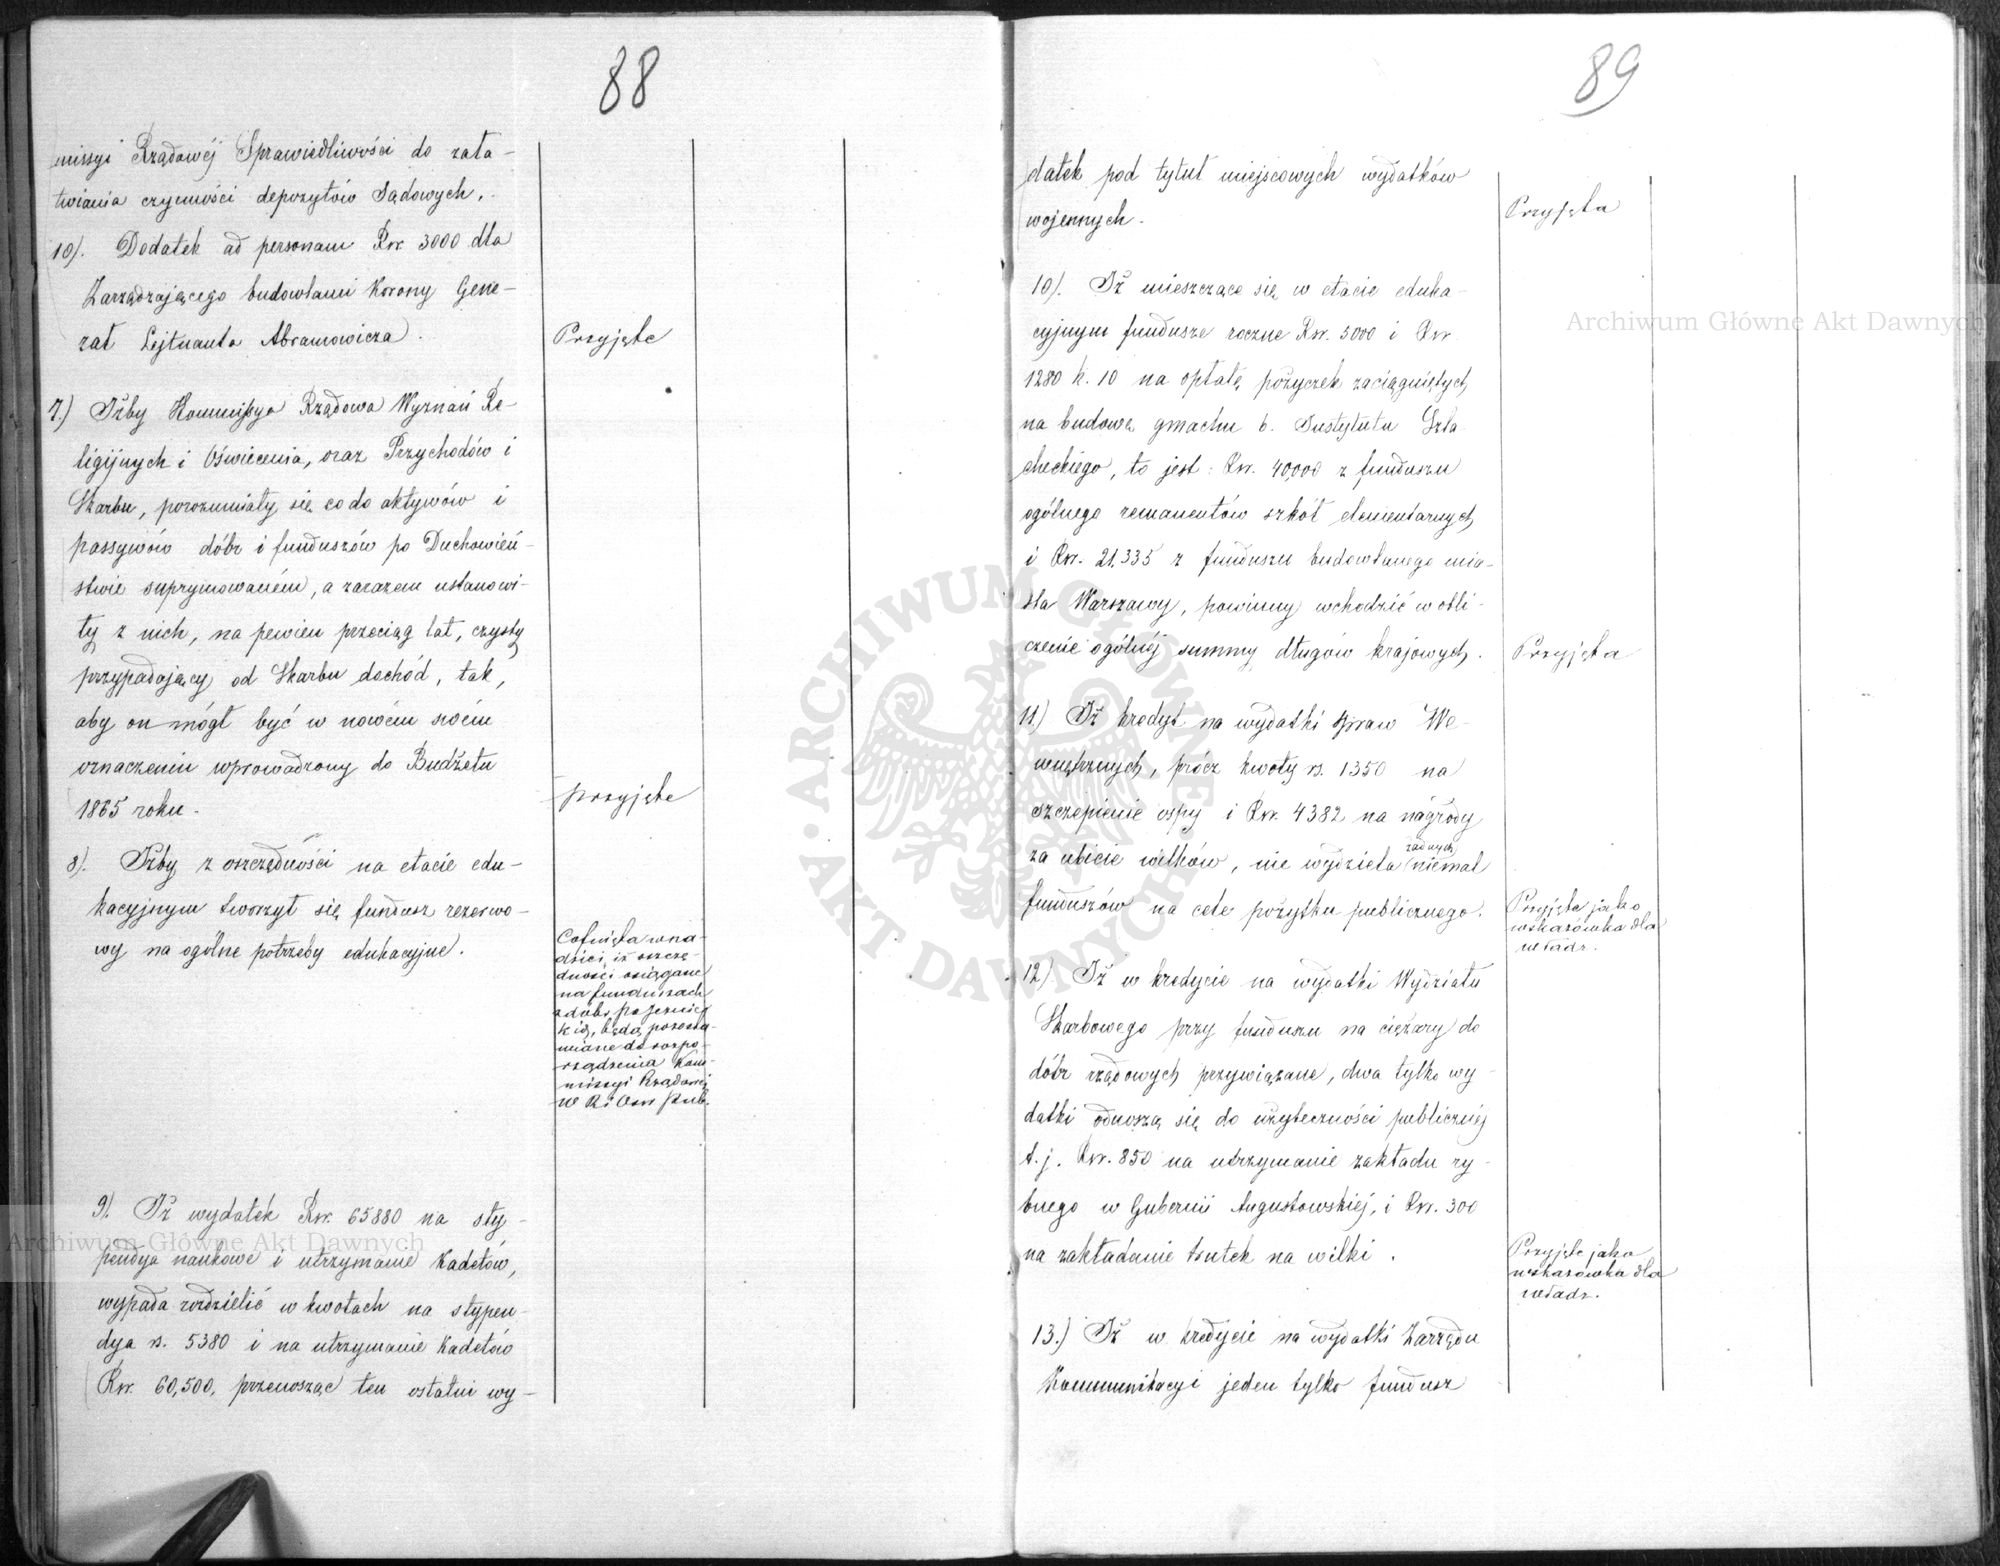 88
missyi Rządowéj Sprawiedliwości do zała-
twiania czynności depozytów Sądowych.
10). Dodatek ad personam Rsr. 3000 dla
Zarządzającego budowlami Korony Gene-
rał Lejtnanta Abramowicza.
Przyjęte
7.) Iżby Kommissya Rządowa Wyznań Re-
ligijnych i Oświecenia, oraz Przychodów i
Skarbu, porozumiały się co do aktywów i
passywów dóbr i funduszów po Duchowień-
stwie suprymowaném, a zarazem ustanowi-
ły z nich, na pewien przeciąg lat, czysty
przypadający od Skarbu dochód, tak,
aby on mógł być w nowém swém
oznaczeniu wprowadzony do Budżetu
1865 roku.
przyjęte
8). Iżby z oszczędności na etacie edu-
kacyjnym tworzył się fundusz rezerwo-
wy na ogólne potrzeby edukacyjne.
Cofnięta w na-
dziei, iż oszczę-
dności osiągane
na funduszach
z dóbr pojezuic
kich, będą pozosta-
wiane do rozpo-
rządzenia Kom-
missyi Rządowéj
W. R. i Ośw. Pub.
9). Iż wydatek Rsr. 65880 na sty-
pendya naukowe i utrzymanie Kadetów,
wypada rozdzielić w kwotach na stypen-
dya rs. 5380 i na utrzymanie Kadetów
Rsr. 60,500, przenosząc ten ostatni wy-
89
datek pod tytuł miejscowych wydatków
wojennych.
Przyjęta
10). Iż mieszczące się w etacie eduka-
cyjnym fundusze roczne Rsr. 5000 i Rsr.
1280 k. 10 na opłatę pożyczek zaciągniętych
na budowę gmachu b. Instytutu Szla-
checkiego, to jest: Rsr. 40,000 z funduszu
ogólnego remanentów szkół elementarnych
i Rsr. 21,335 z funduszu budowlanego mia-
sta Warszawy, powinny wchodzić w obli-
czenie ogólnéj summy długów krajowych.
Przyjęta
11.) Iż kredyt na wydatki Spraw We-
wnętrznych, prócz kwoty rs. 1350 na
szczepienie ospy i Rsr. 4382 na nagrody
za ubicie wilków, nie wydziela żadnych niemal
funduszów na cele pożytku publicznego.
Przyjęte jako
wskazówka dla
władz.
12.) Iż w kredycie na wydatki Wydziału
Skarbowego przy funduszu na ciężary do
dóbr rządowych przywiązane, dwa tylko wy-
datki odnoszą się do użyteczności publicznéj
t. j. Rsr. 850 na utrzymanie zakładu ry-
bnego w Gubernii Augustowskiej, i Rsr. 300
na zakładanie trutek na wilki.
Przyjęte jako
wskazówka dla
władz.
13.) Iż w kredycie na wydatki Zarządu
Kommunikacyi jeden tylko fundusz
Archiwum Główne Akt Dawnych
Archiwum Główne Akt Dawnych
ARCHIWUM GŁÓWNE AKT DAWNYCH